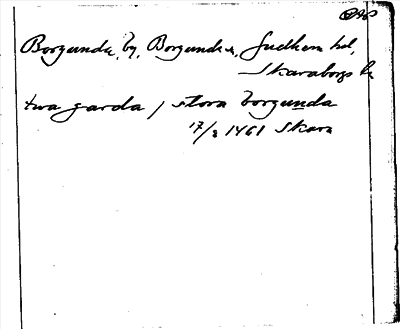 Borgunda, by, Borgunda s, Gudhem hd,
Skaraborgs l.
twa garda / stora borgunda
17/2 1461 Skara